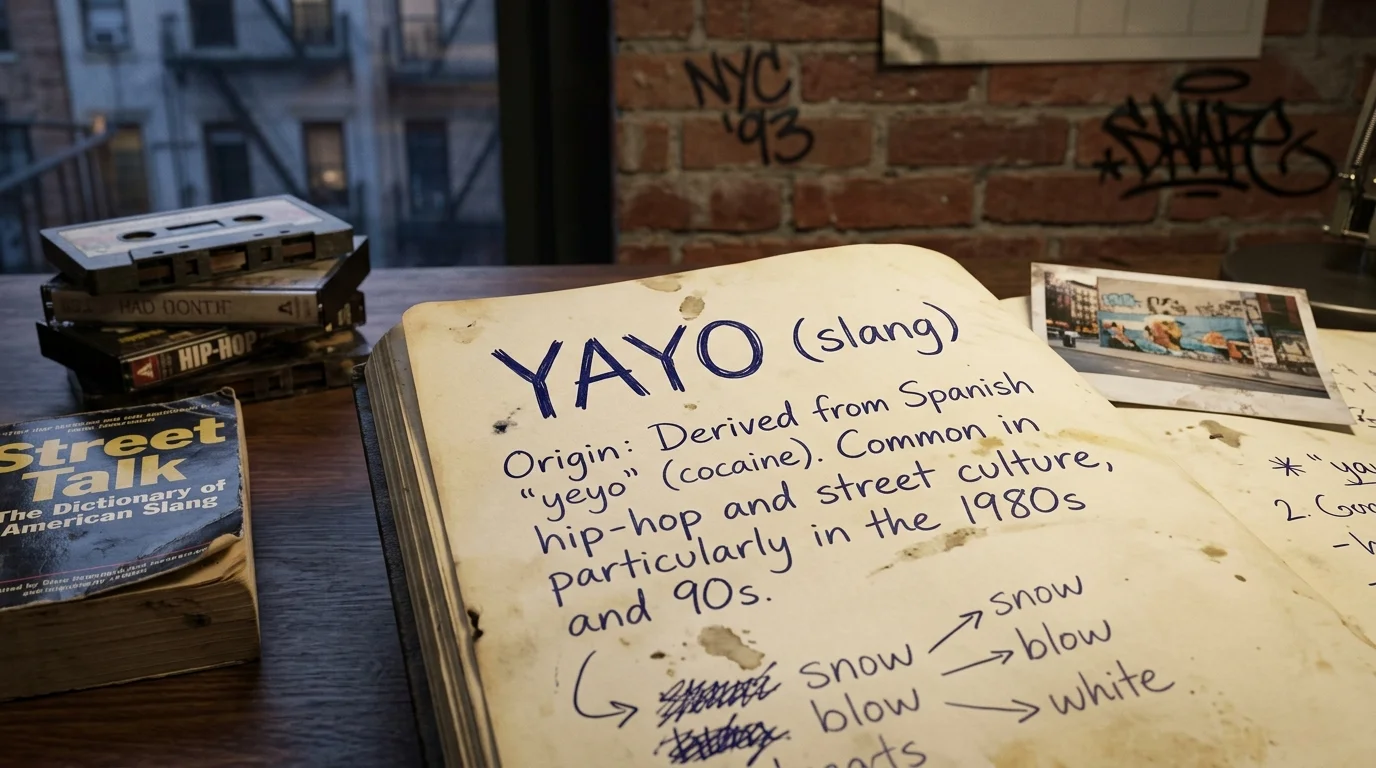 NYC
'93
HIP-HOP
Street
Talk
The Dictionary of
American Slang
YAYO (slang)
Origin: Derived from Spanish
“yeyo” (cocaine). Common in
hip-hop and street culture,
particularly in the 1980s
and 90s.
snow → snow
blow → blow
→ white
* “
2.